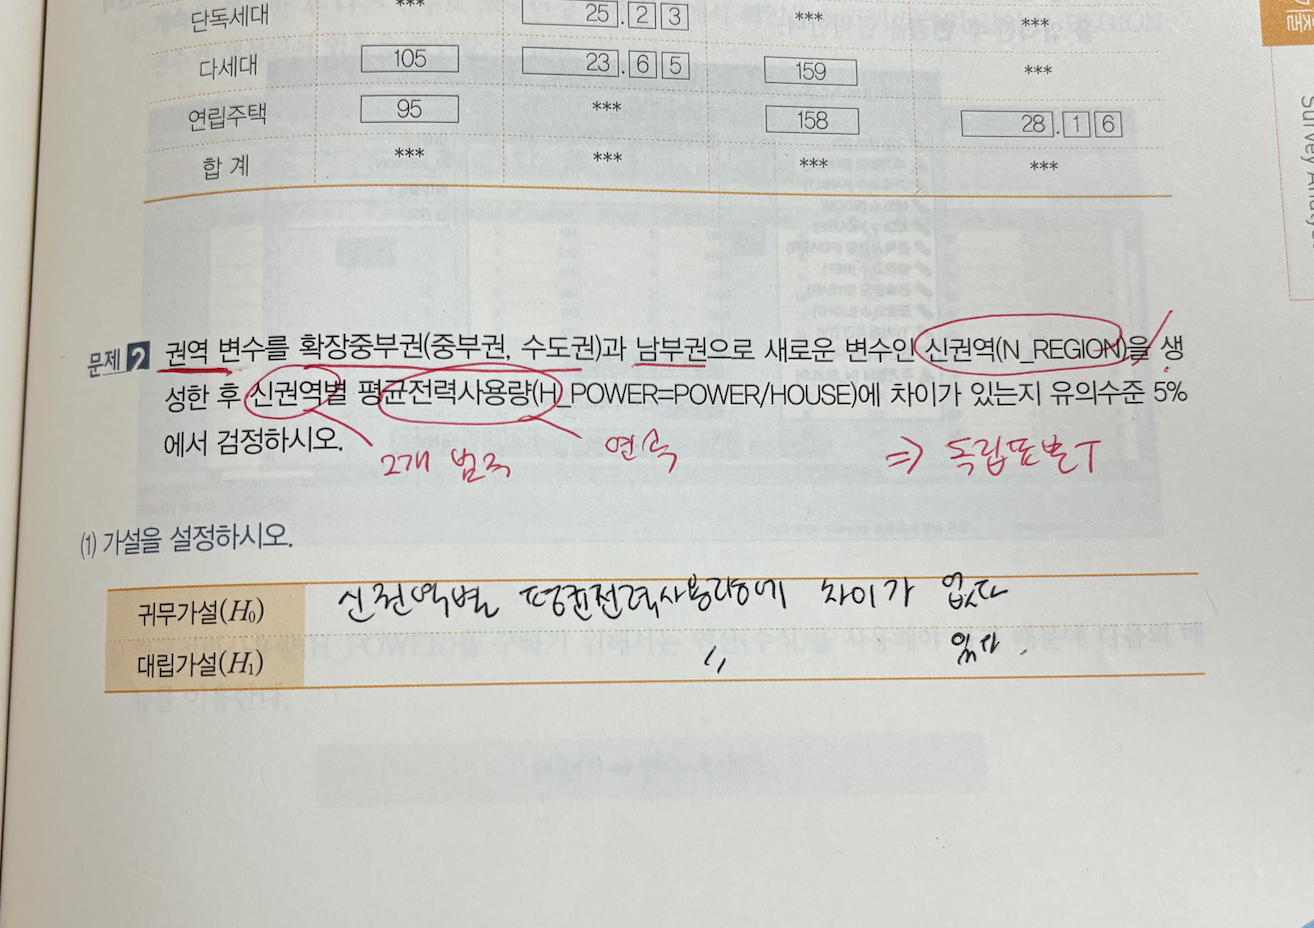 단독세대 *** 25.23 *** ***
다세대 105 23.65 159 ***
연립주택 95 *** 158 28.16
합 계 *** *** *** ***
문제 2 권역 변수를 확장중부권(중부권, 수도권)과 남부권으로 새로운 변수인 신권역(N_REGION)을 생
성한 후 신권역별 평균전력사용량(H_POWER=POWER/HOUSE)에 차이가 있는지 유의수준 5%
에서 검정하시오.
2개 범주 연속 ⇒ 독립표본T
(1) 가설을 설정하시오.
귀무가설(H₀) 신권역별 평균전력사용량에 차이가 없다
대립가설(H₁) 〃 있다.